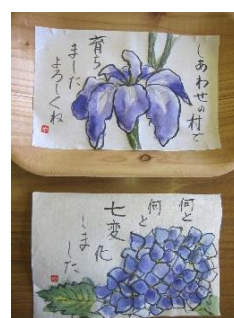 しあわせの村で
育ち
ました
よろしくね
何と
何と
七変化
しました